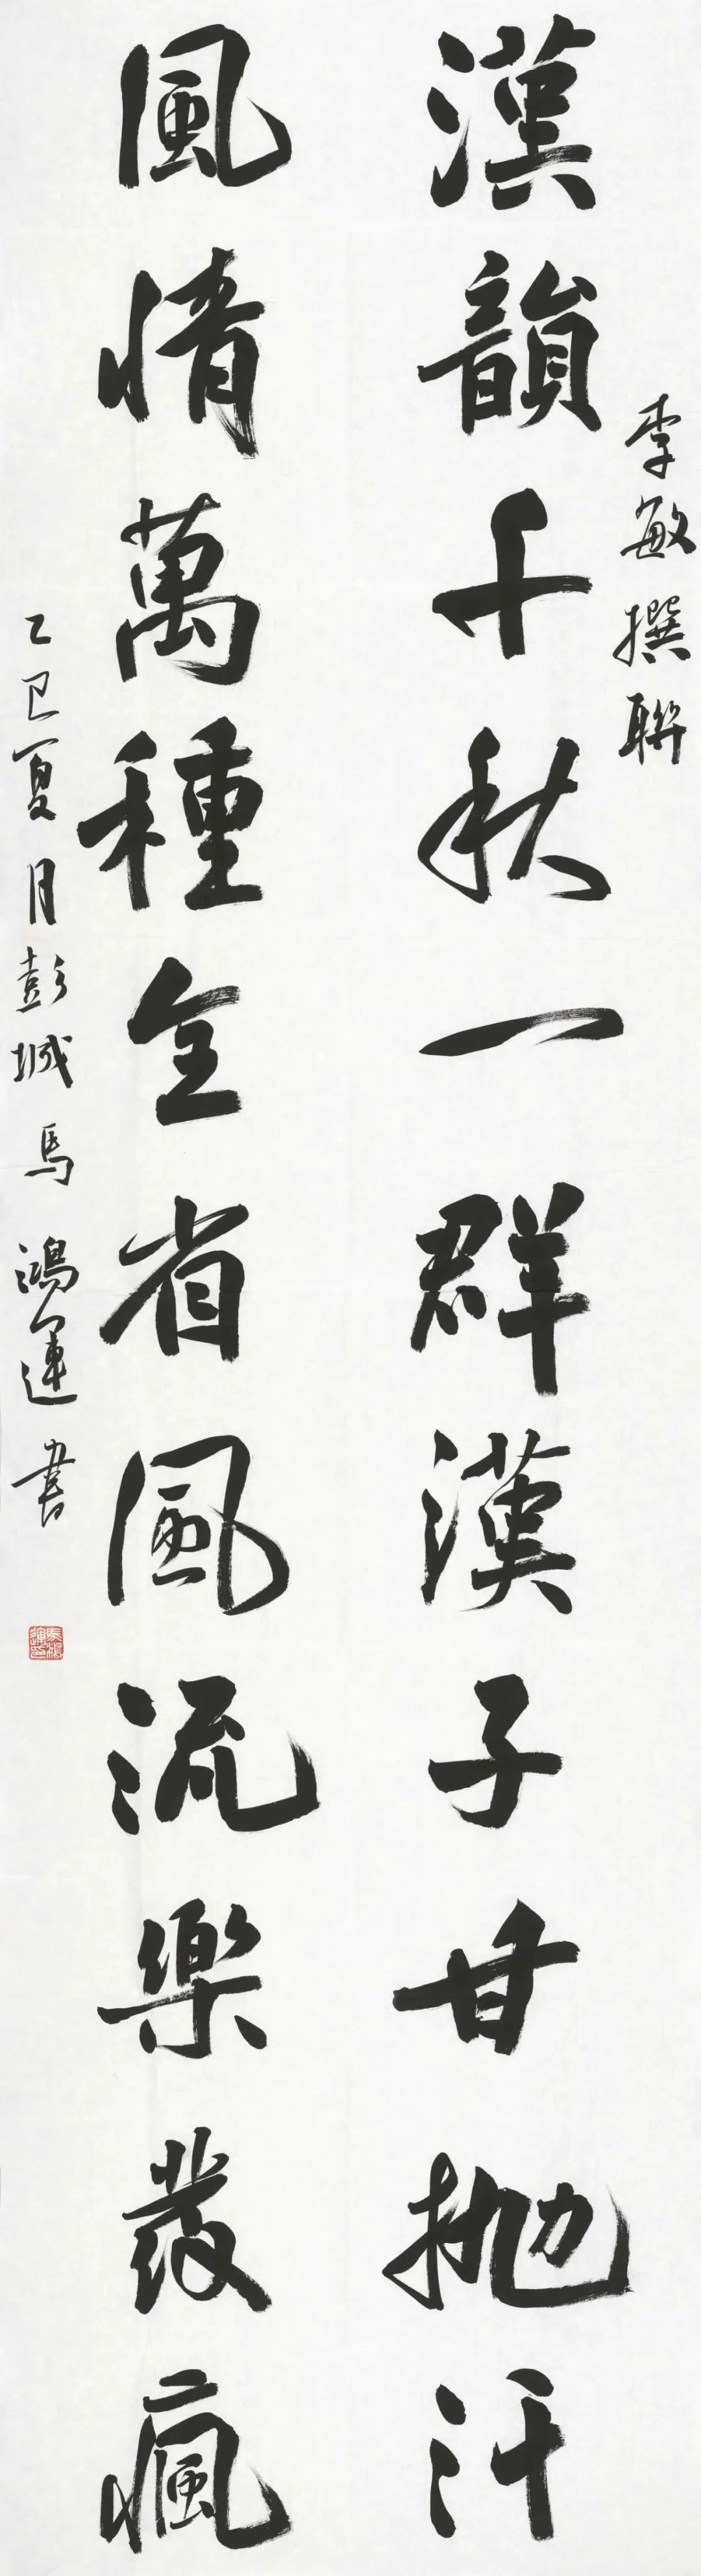 李敏撰聯
漢韻千秋一群漢子甘抛汗
風情萬種全省風流樂發瘋
乙巳夏月彭城馬鴻運書